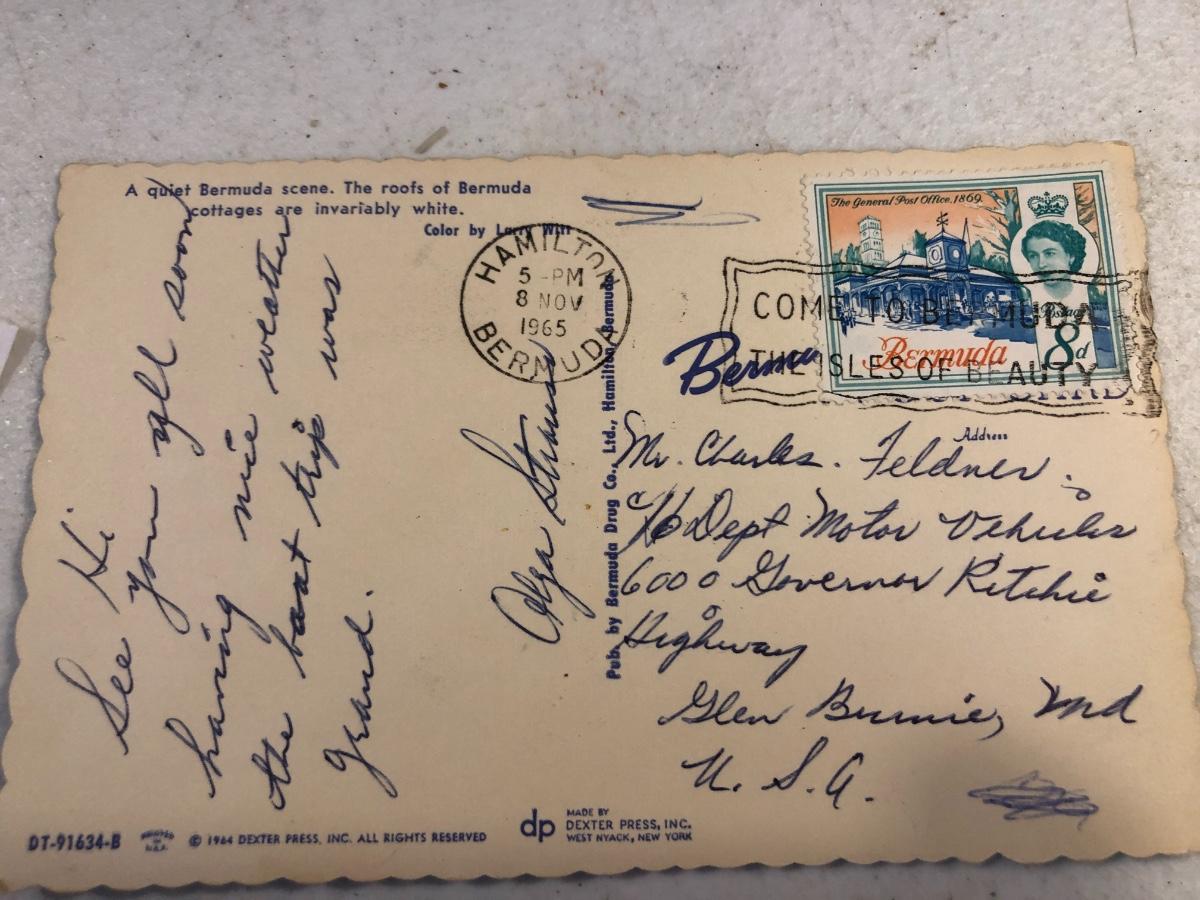 A quiet Bermuda scene. The roofs of Bermuda
cottages are invariably white.
Color by Larry Witt
Hi
See you all soon
having nice weather
the boat trip was
grand.
Olga Strauss
HAMILTON
5 -PM
8 NOV
1965
BERMUDA
Pub. by Bermuda Drug Co., Ltd., Hamilton, Bermuda
The General Post Office, 1869.
Postage
8d
Bermuda
COME TO BERMUDA
THE ISLES OF BEAUTY
Bermu
Address
Mr. Charles. Feldner.
c/o Dept Motor Vehicles
6000 Governor Ritchie
Highway
Glen Burnie, Md
U. S. A.
DT-91634-B
PRINTED
IN
U.S.A.
© 1964 DEXTER PRESS, INC. ALL RIGHTS RESERVED
dp
MADE BY
DEXTER PRESS, INC.
WEST NYACK, NEW YORK